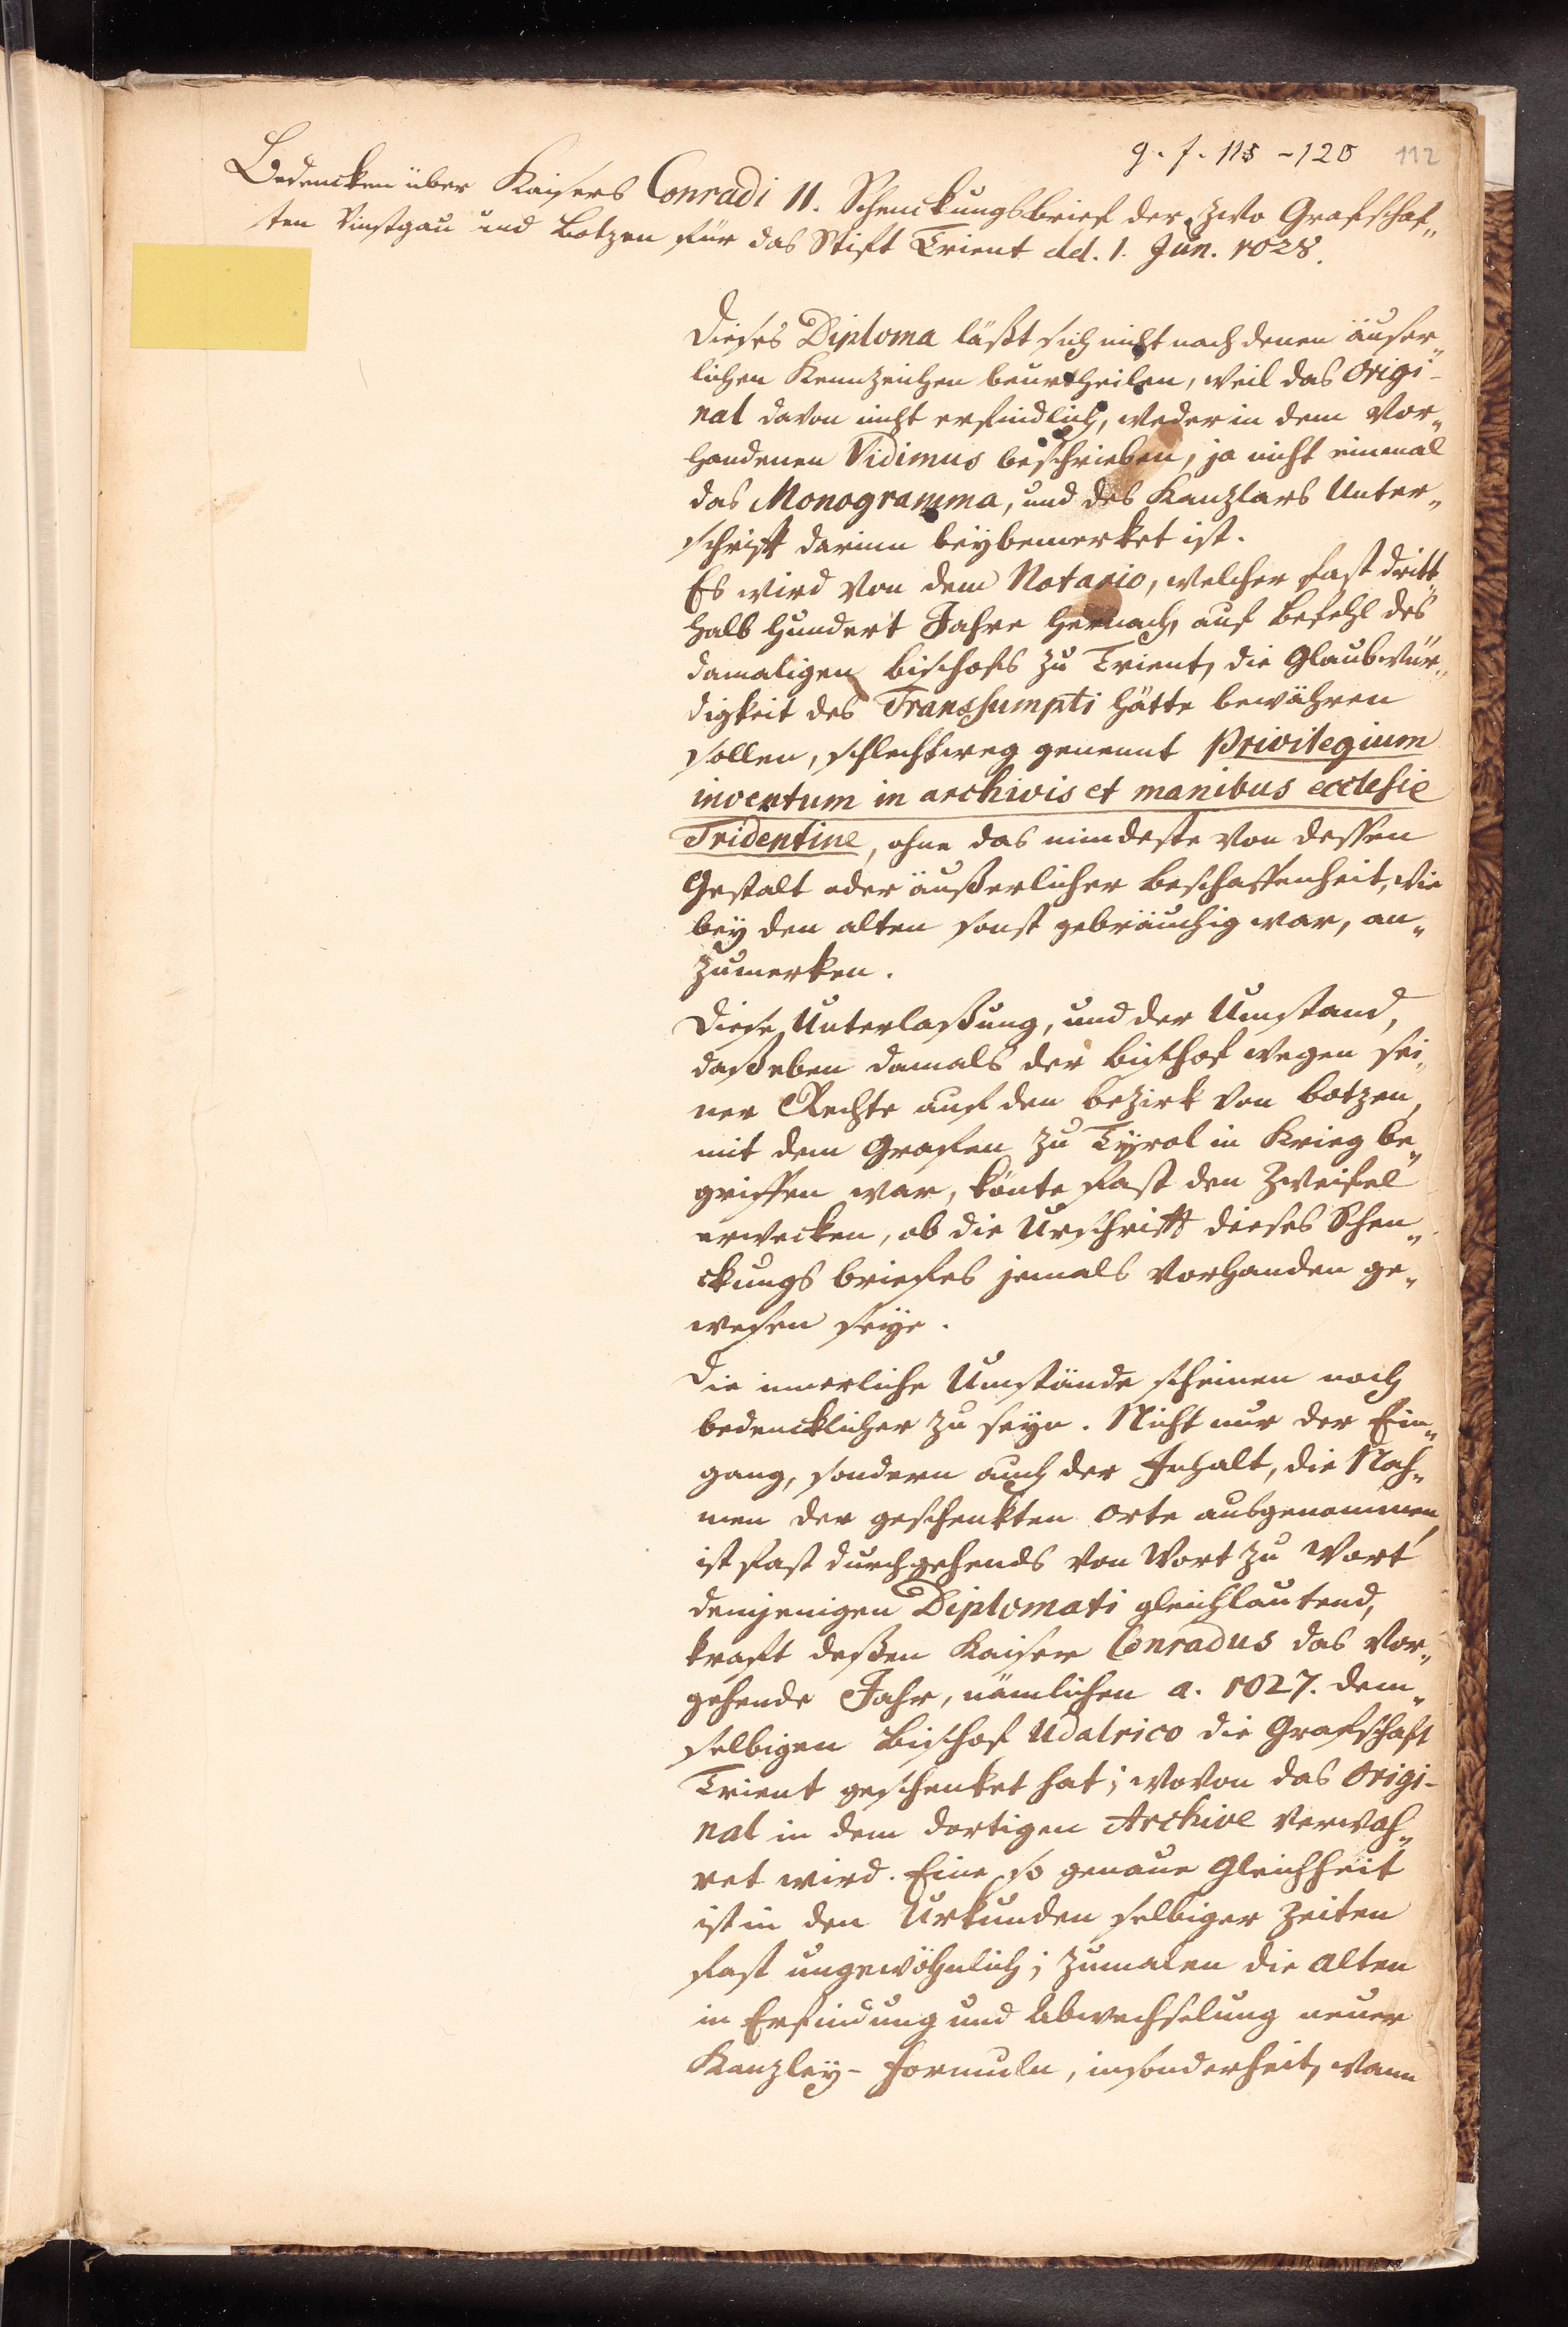 g. f. 115 - 120 112
Bedencken über Kaisers Conradi II. Schenckungsbrief der zwo Grafschaf„
ten Vinstgau und Botzen für das Stift Trient dd. 1. Jun. 1028.
Dieses Diploma läßt sich nicht nach denen äuser„
lichen Kennzeichen beurtheilen, weil das Origi-
nal davon nicht erfindlich, weder in dem vor„
handenen Vidimus beschrieben, ja nicht einmal
das Monogramma, und des Kanzlars Unter„
schrift darinn beÿbemerket ist.
Es wird von dem Notario, welcher fast dritt„
halb hundert Jahre hernach, auf Befehl des
damaligen Bischofs zu Trient, die Glaubwür„
digkeit des Transsumpti hätte bewähren
sollen, schlechtweg genennt Privilegium
inventum in archivis et manibus ecclesie
Tridentine, ohne das mindeste von dessen
Gestalt oder äußerlicher Beschaffenheit, wie
beÿ den alten sonst gebräuchig war, an„
zumerken.
Diese Unterlaßung, und der Umstand,
daß eben damals der Bischof wegen sei„
ner Rechte auf den Bezirk von Botzen,
mit dem Grafen zu Tÿrol in Krieg be„
griffen war, könte fast den Zweifel
erwecken, ob die Urschrift dieses Schen„
ckungs briefes jemals vorhanden ge„
wesen seÿe.
Die innerliche Umstände scheinen noch
bedencklicher zu seÿn. Nicht nur der Ein„
gang, sondern auch der Inhalt, die Nah„
men der geschenkten Orte ausgenommen,
ist fast durchgehends von Wort zu Wort
demjenigen Diplomati gleichlautend,
kraft deßen Kaiser Conradus das vor„
gehende Jahr, nämlichen a. 1027. dem„
selbigen Bischof Udalrico die Grafschaft
Trient geschenket hat; wovon das Origi-
nal in dem dortigen Archive verwah„
ret wird. Eine so genaue Gleichheit
ist in den Urkunden selbiger Zeiten
fast ungewöhnlich; zumalen die Alten
in Erfindung und Abwechselung neuer
Kanzleÿ-formuln, insonderheit, wann